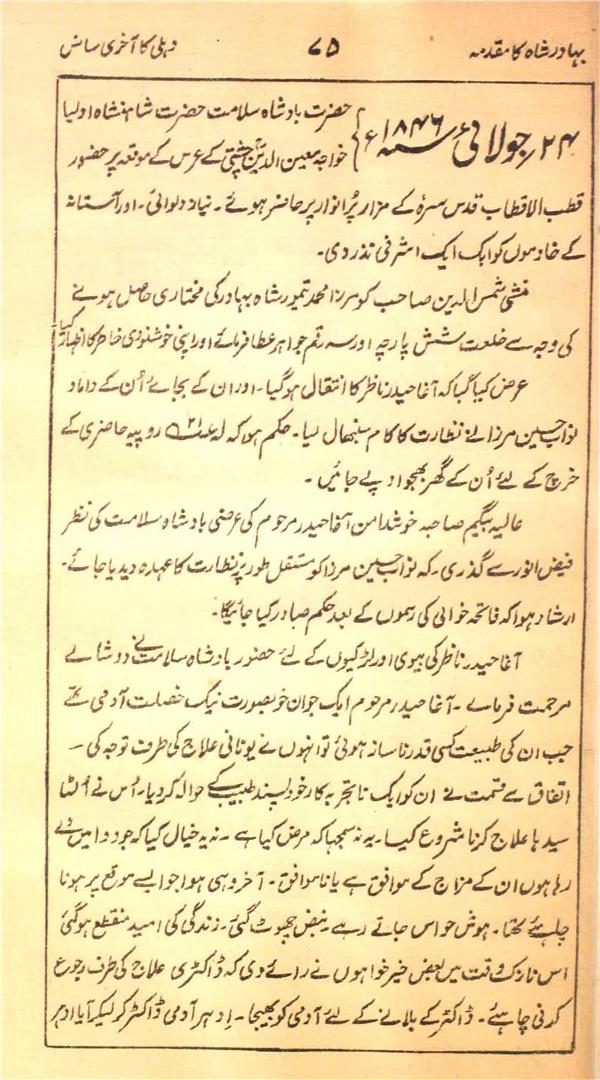 بہادر شاہ کا مقدمہ ۷۵ دہلی کا آخری سانس
۲۴؍جولائی ۱۸۴۶ء } حضرت بادشاہ سلامت حضرت شاہنشاہ اولیا
خواجہ معین الدین چشتی کے عرس کے موقعہ پر حضور
قطب الاقطاب قدس سرہٗ کے مزار پُرانوار پر حاضر ہوئے۔ نیاز دلوائی۔ اور آستانہ
کے خادموں کو ایک ایک اشرفی نذر دی۔
منشی شمس الدین صاحب کو مرزا محمد تیمور شاہ بہادر کی مختاری حاصل ہونے
کی وجہ سے خلعت شش پارچہ اور سہ رقم جواہر عطا فرمائے اور اپنی خوشنودی خاطر کا اظہار کیا
عرض کیا گیا کہ آغا حیدر ناظر کا انتقال ہوگیا۔ اور ان کے بجائے اُن کے داماد
نواب حسین مرزا نے نظارت کا کام سنبھال لیا۔ حکم ہوا کہ روپیہ حاضری کے
خرچ کے لئے اُن کے گھر بھجوا دیے جائیں۔
عالیہ بیگم صاحبہ خوشدامن آغا حیدر مرحوم کی عرضی بادشاہ سلامت کی نظر
فیض انور سے گذری۔ کہ نواب حسین مرزا کو مستقل طور پر نظارت کا عہدہ دیدیا جائے۔
ارشاد ہوا کہ فاتحہ خوانی کی رسموں کے بعد حکم صادر کیا جائیگا۔
آغا حیدر ناظر کی بیوی اور لڑکیوں کے لئے حضور بادشاہ سلامت نے دوشالے
مرحمت فرمائے۔ آغا حیدر مرحوم ایک جوان خوبصورت نیک خصلت آدمی تھے
جب ان کی طبیعت کسی قدر ناساز ہوئی تو انہوں نے یونانی علاج کی طرف توجہ کی۔
اتفاق سے قسمت نے ان کو ایک ناتجربہ کار خود پسند طبیب کے حوالہ کردیا۔ اُس نے اُلٹا
سیدہا علاج کرنا شروع کیا۔ یہ نہ سمجہا کہ مرض کیا ہے۔ نہ یہ خیال کیا کہ جو دوا میں دے
رہا ہوں ان کے مزاج کے موافق ہے یا ناموافق۔ آخر وہی ہوا جو ایسے موقع پر ہونا
چاہئے تھا۔ ہوش حواس جاتے رہے۔ نبض چھوٹ گئی۔ زندگی کی امید منقطع ہوگئی
اس نازک وقت میں بعض خیر خواہوں نے رائے دی کہ ڈاکٹری علاج کی طرف رجوع
کرنی چاہئے۔ ڈاکٹر کے بلانے کے لئے آدمی کو بھیجا۔ اِدہر آدمی ڈاکٹر کو لیکر آیا ادہر